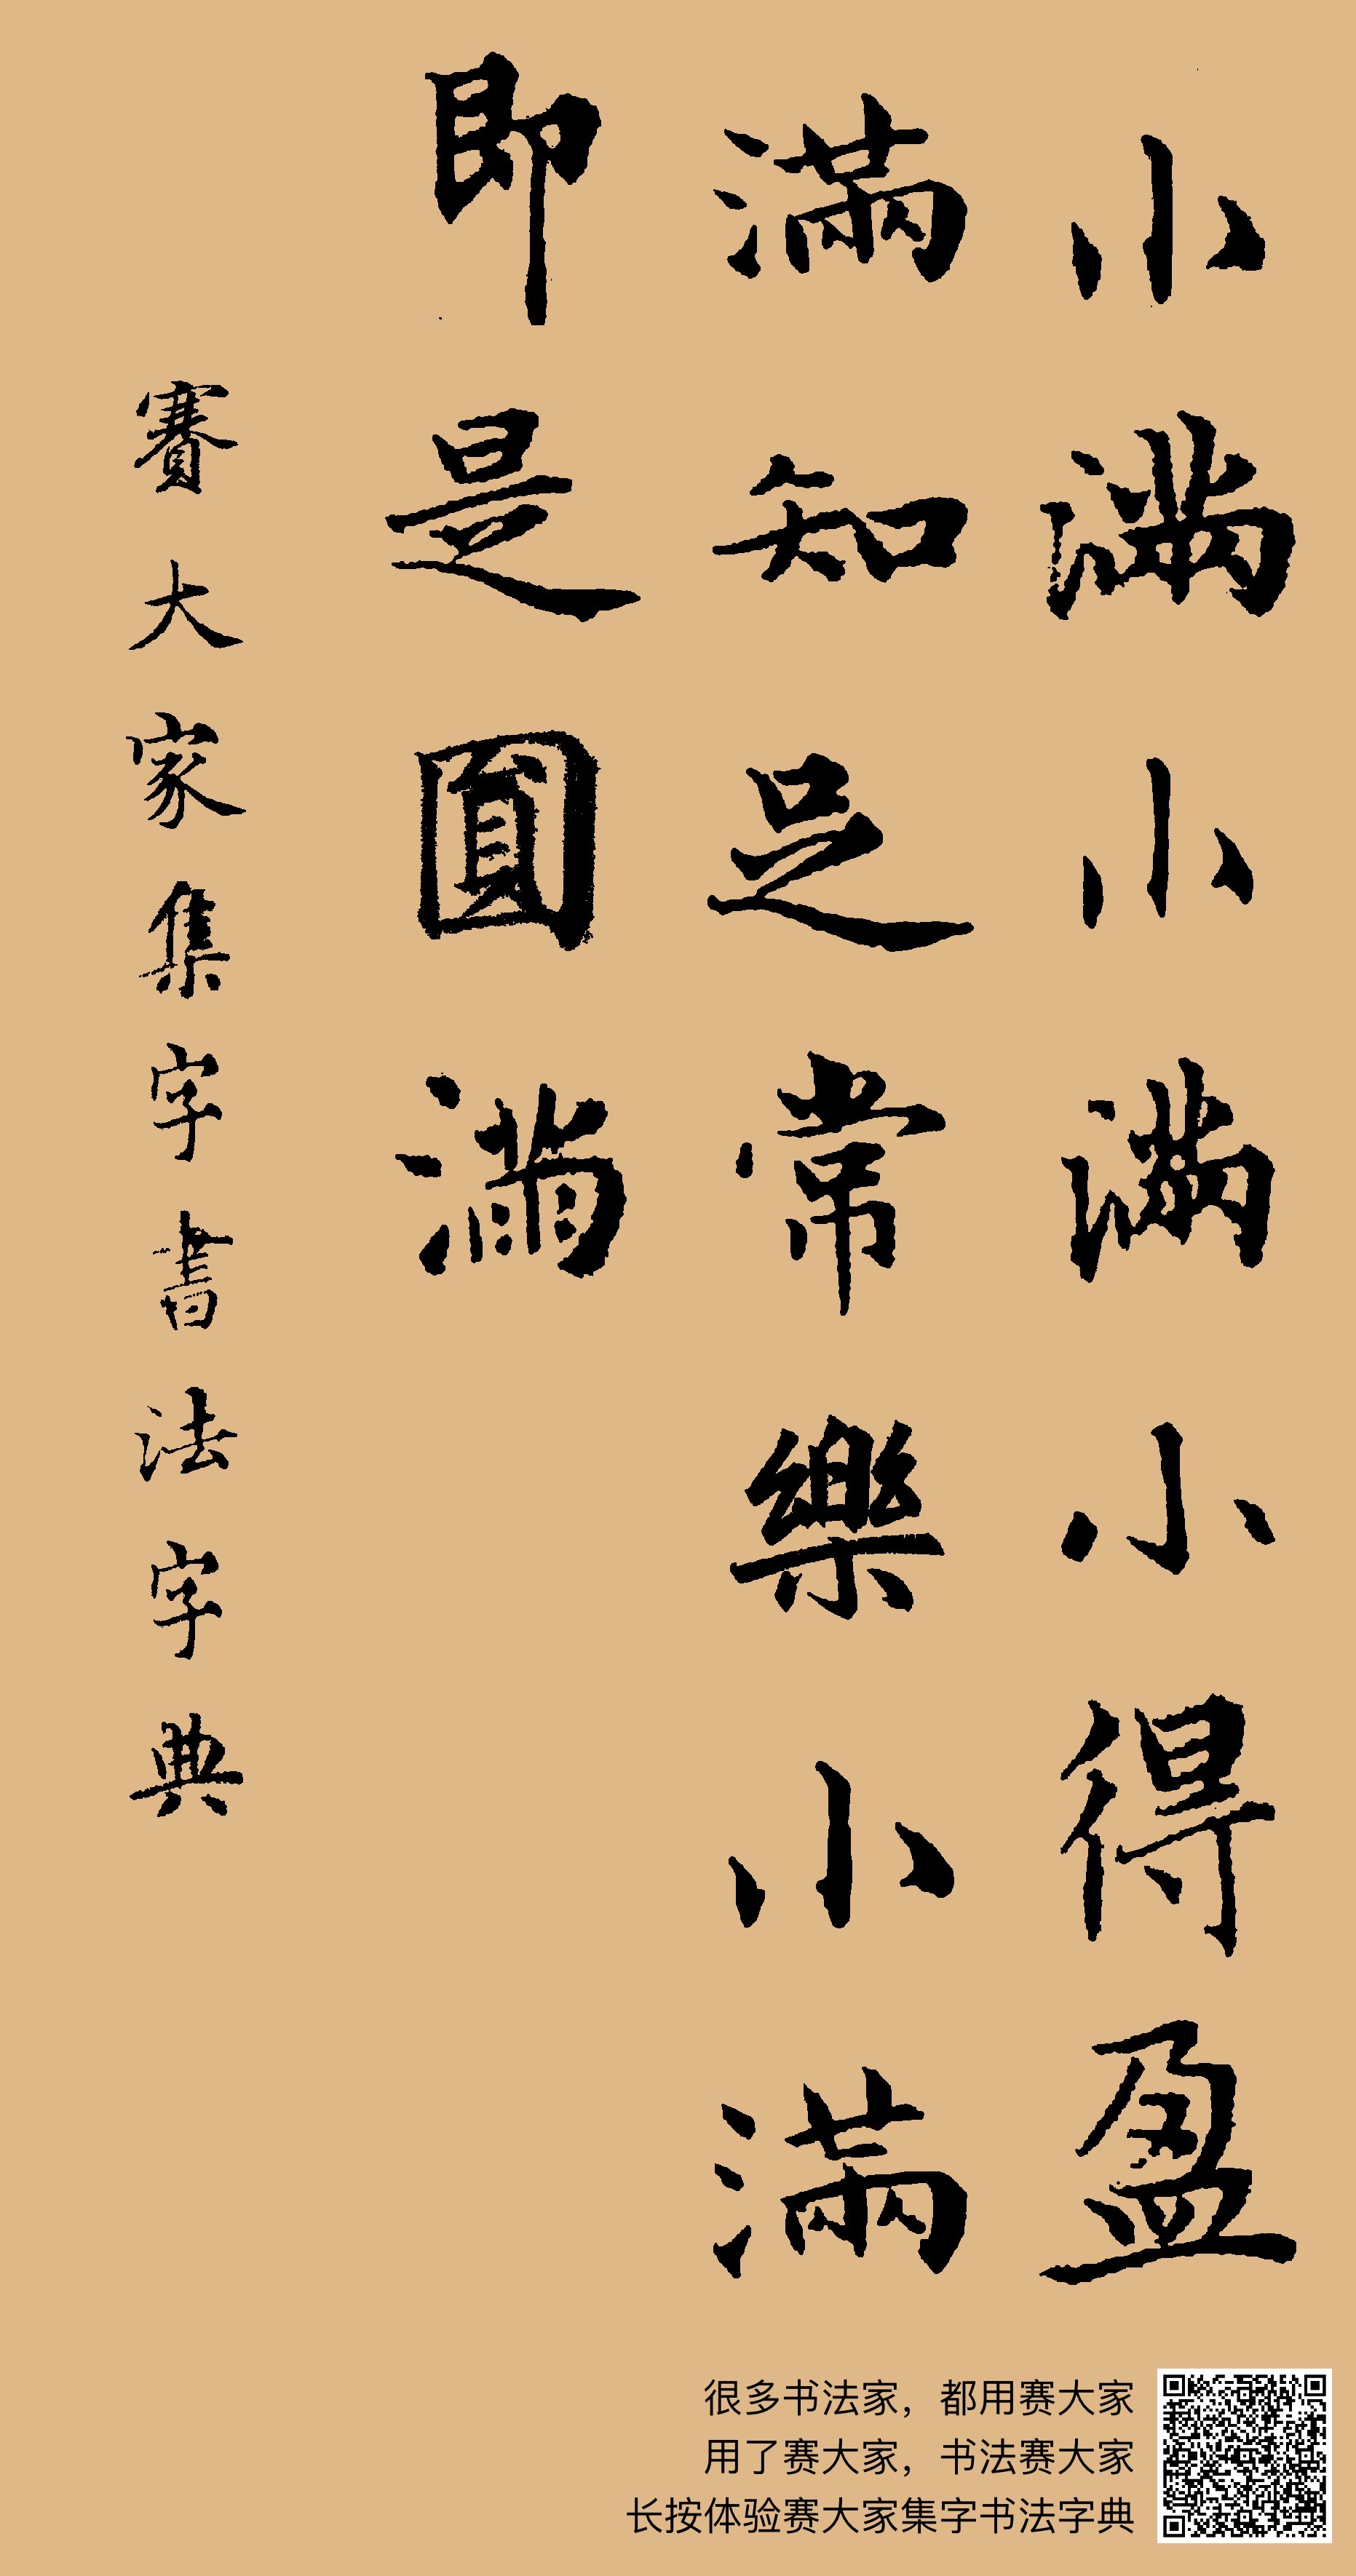 小满小满小得盈
满知足常樂小满
即是圓满
賽大家集字書法字典
很多书法家，都用赛大家
用了赛大家，书法赛大家
长按体验赛大家集字书法字典